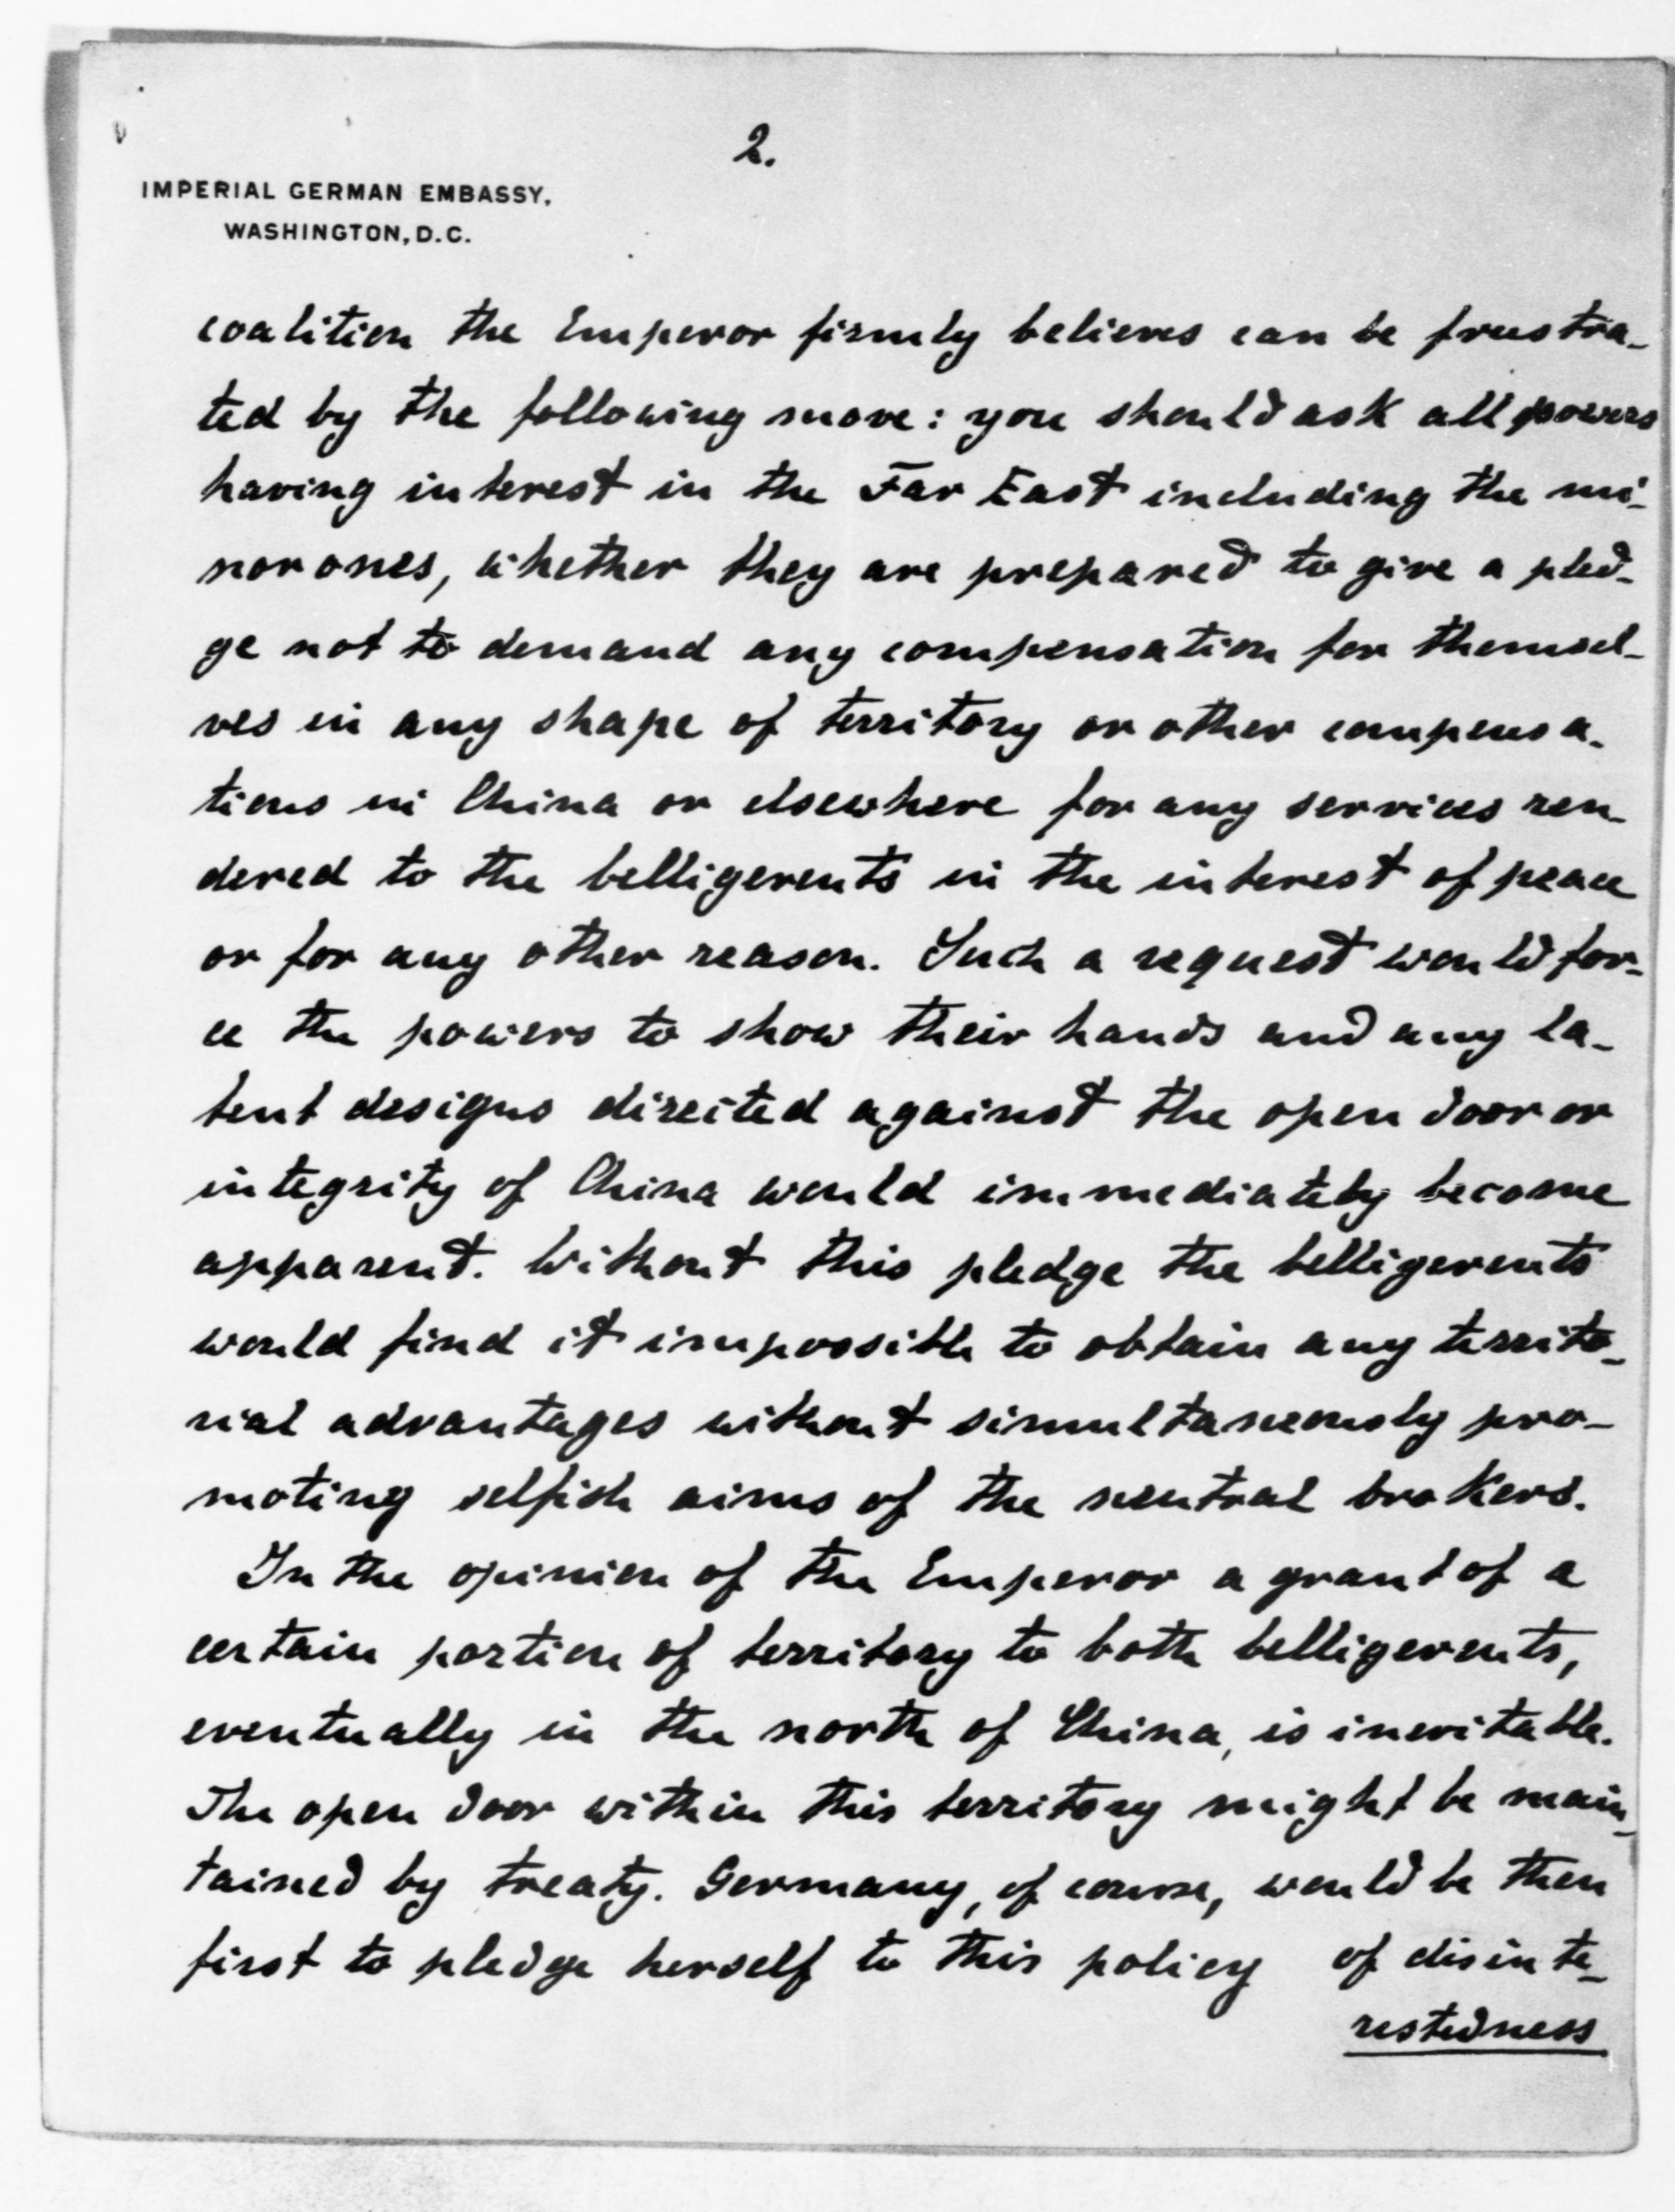 2.
IMPERIAL GERMAN EMBASSY,
WASHINGTON, D.C.
coalition the Emperor firmly believes can be frustra-
ted by the following move: you should ask all powers
having interest in the Far East including the mi-
nor ones, whether they are prepared to give a pled-
ge not to demand any compensation for themsel-
ves in any shape of territory or other compensa-
tions in China or elsewhere for any services ren-
dered to the belligerents in the interest of peace
or for any other reason. Such a request would for-
ce the powers to show their hands and any la-
tent designs directed against the open door or
integrity of China would immediately become
apparent. Without this pledge the belligerents
would find it impossible to obtain any territo-
rial advantages without simultaneously pro-
moting selfish aims of the neutral brokers.
In the opinion of the Emperor a grant of a
certain portion of territory to both belligerents,
eventually in the north of China, is inevitable.
The open door within this territory might be main-
tained by treaty. Germany, of course, would be then
first to pledge herself to this policy of disinte-
restedness